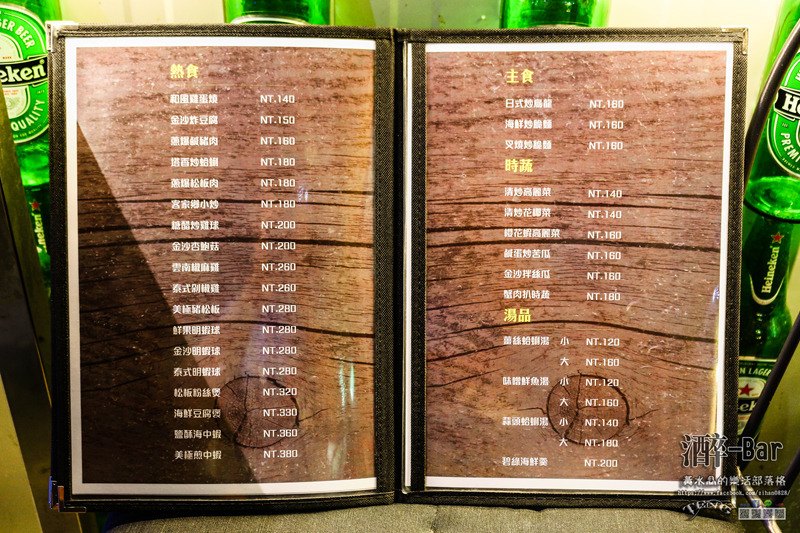 熱食
和風雞蛋燒 NT.140
金沙炸豆腐 NT.150
蔥爆鹹豬肉 NT.160
塔香炒蛤蜊 NT.180
蔥爆松板肉 NT.180
客家小炒 NT.180
糖醋炒雞球 NT.200
金沙杏鮑菇 NT.200
雲南椒麻雞 NT.260
泰式剁椒雞 NT.260
美極豬松板 NT.280
鮮果明蝦球 NT.280
金沙明蝦球 NT.280
泰式明蝦球 NT.280
松板粉絲煲 NT.320
海鮮豆腐煲 NT.330
鹽酥海中蝦 NT.360
美極煎中蝦 NT.380
主食
日式炒烏龍 NT.160
海鮮炒脆麵 NT.160
叉燒炒脆麵 NT.160
時蔬
清炒高麗菜 NT.140
清炒花椰菜 NT.140
櫻花蝦高麗菜 NT.160
鹹蛋炒苦瓜 NT.160
金沙拌絲瓜 NT.160
蟹肉扒時蔬 NT.180
湯品
薑絲蛤蜊湯 小 NT.120
大 NT.160
味噌鮮魚湯 小 NT.120
大 NT.160
蒜頭蛤蜊湯 小 NT.140
大 NT.180
碧綠海鮮羹 NT.200
Heineken
Heineken
酒窣-Bar
黃水晶的樂活部落格